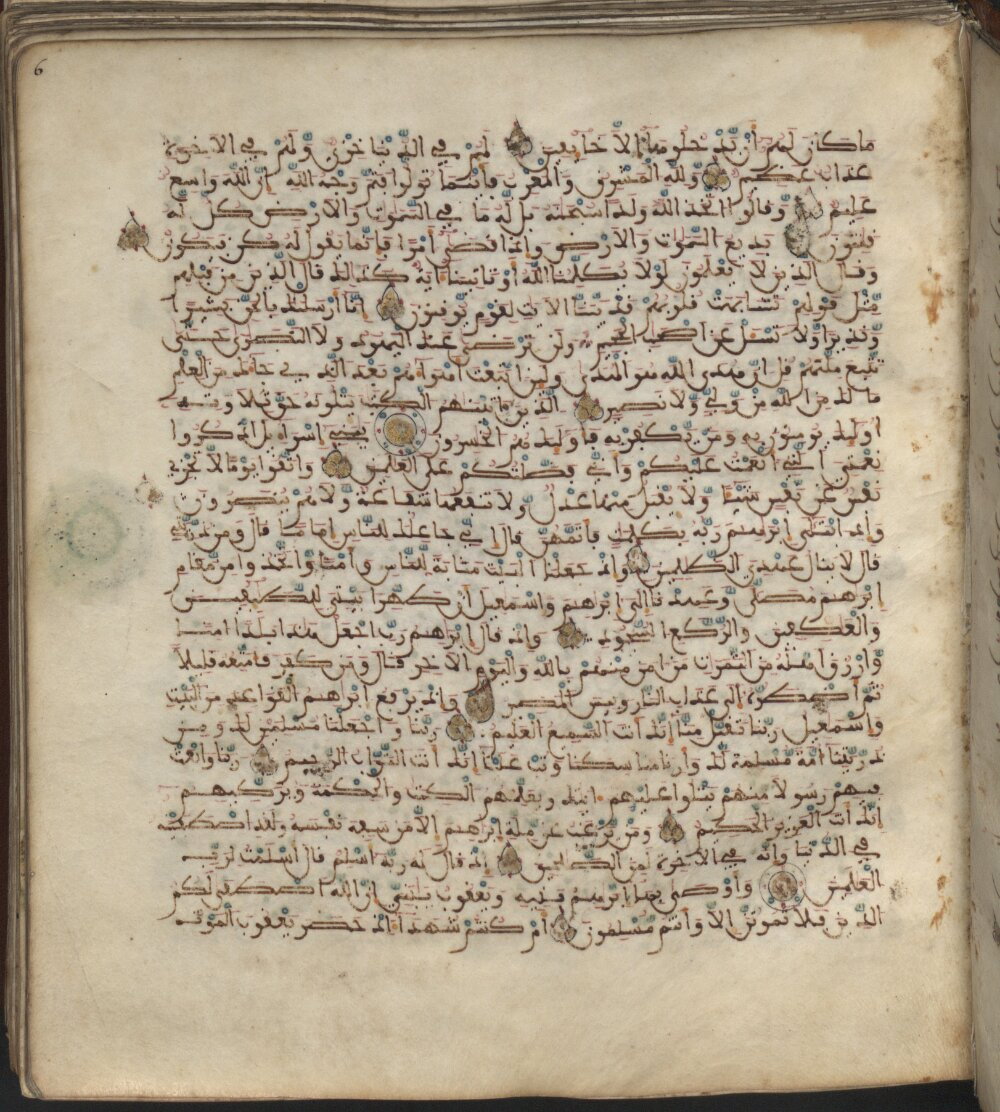 6
ما كان لهم أن يدخلوها إلا خائفين لهم في الدنيا خزي ولهم في الآخرة
عذاب عظيم ولله المشرق والمغرب فأينما تولوا فثم وجه الله إن الله واسع
عليم وقالوا اتخذ الله ولدا سبحنه بل له ما في السموت والأرض كل له
قنتون بديع السموت والأرض وإذا قضى أمرا فإنما يقول له كن فيكون
وقال الذين لا يعلمون لولا يكلمنا الله أو تأتينا آية كذلك قال الذين من قبلهم
مثل قولهم تشبهت قلوبهم قد بينا الآيت لقوم يوقنون إنا أرسلنك بالحق بشيرا
ونذيرا ولا تسئل عن أصحب الجحيم ولن ترضى عنك اليهود ولا النصرى حتى
تتبع ملتهم قل إن هدى الله هو الهدى ولئن اتبعت أهواءهم بعد الذي جاءك من العلم
ما لك من الله من ولي ولا نصير الذين آتينهم الكتب يتلونه حق تلاوته
أولئك يؤمنون به ومن يكفر به فأولئك هم الخسرون يبني إسرائيل اذكروا
نعمتي التي أنعمت عليكم وأني فضلتكم على العلمين واتقوا يوما لا تجزي
نفس عن نفس شيئا ولا يقبل منها عدل ولا تنفعها شفعة ولا هم ينصرون
وإذ ابتلى إبرهيم ربه بكلمت فأتمهن قال إني جاعلك للناس إماما قال ومن ذريتي
قال لا ينال عهدي الظلمين وإذ جعلنا البيت مثابة للناس وأمنا واتخذوا من مقام
إبرهيم مصلى وعهدنا إلى إبرهيم وإسمعيل أن طهرا بيتي للطائفين
والعكفين والركع السجود وإذ قال إبرهيم رب اجعل هذا بلدا آمنا
وارزق أهله من الثمرت من آمن منهم بالله واليوم الآخر قال ومن كفر فأمتعه قليلا
ثم أضطره إلى عذاب النار وبئس المصير وإذ يرفع إبرهيم القواعد من البيت
وإسمعيل ربنا تقبل منا إنك أنت السميع العليم ربنا واجعلنا مسلمين لك ومن
ذريتنا أمة مسلمة لك وأرنا مناسكنا وتب علينا إنك أنت التواب الرحيم ربنا وابعث
فيهم رسولا منهم يتلوا عليهم آيتك ويعلمهم الكتب والحكمة ويزكيهم
إنك أنت العزيز الحكيم ومن يرغب عن ملة إبرهيم إلا من سفه نفسه ولقد اصطفينه
في الدنيا وإنه في الآخرة لمن الصلحين إذ قال له ربه أسلم قال أسلمت لرب
العلمين وأوصى بها إبرهيم بنيه ويعقوب يبني إن الله اصطفى لكم
الدين فلا تموتن إلا وأنتم مسلمون أم كنتم شهداء إذ حضر يعقوب الموت